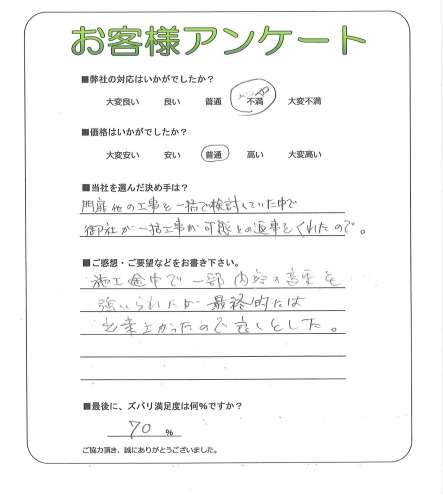 お客様アンケート
■弊社の対応はいかがでしたか？
大変良い 良い 普通 不満 大変不満
■価格はいかがでしたか？
大変安い 安い 普通 高い 大変高い
■当社を選んだ決め手は？
門扉他の工事を一括で検討していた中で
御社が一括工事が可能との返事をくれたので。
■ご感想・ご要望などをお書き下さい。
施工途中で一部内容の変更を
強いられたが最終的には
出来上がったので良しとした。
■最後に、ズバリ満足度は何%ですか？
70 %
ご協力頂き、誠にありがとうございました。